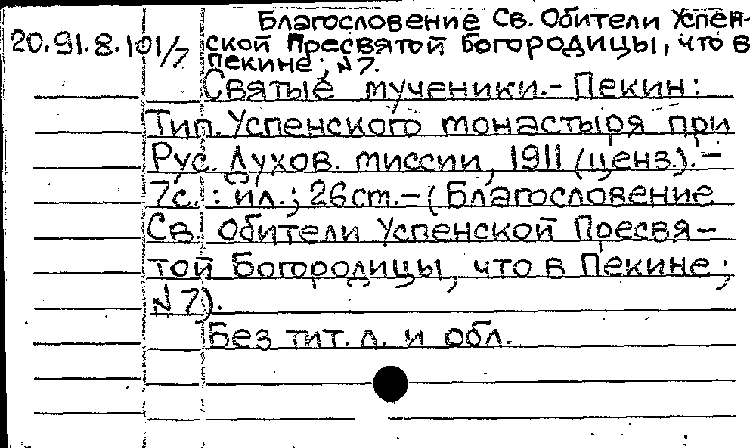 Благословение Св. Обители Успен-
20.91.8.101/7 ской Пресвятой Богородицы, что в
Пекине; N7.
Святые мученики.- Пекин:
Тип. Успенского монастыря при
Рус. Духов. миссии, 1911 (ценз).-
7с. : ил.; 26ст.-(Благословение
Св. Обители Успенской Пресвя-
той Богородицы, что в Пекине;
N7).
Без тит. л. и обл.